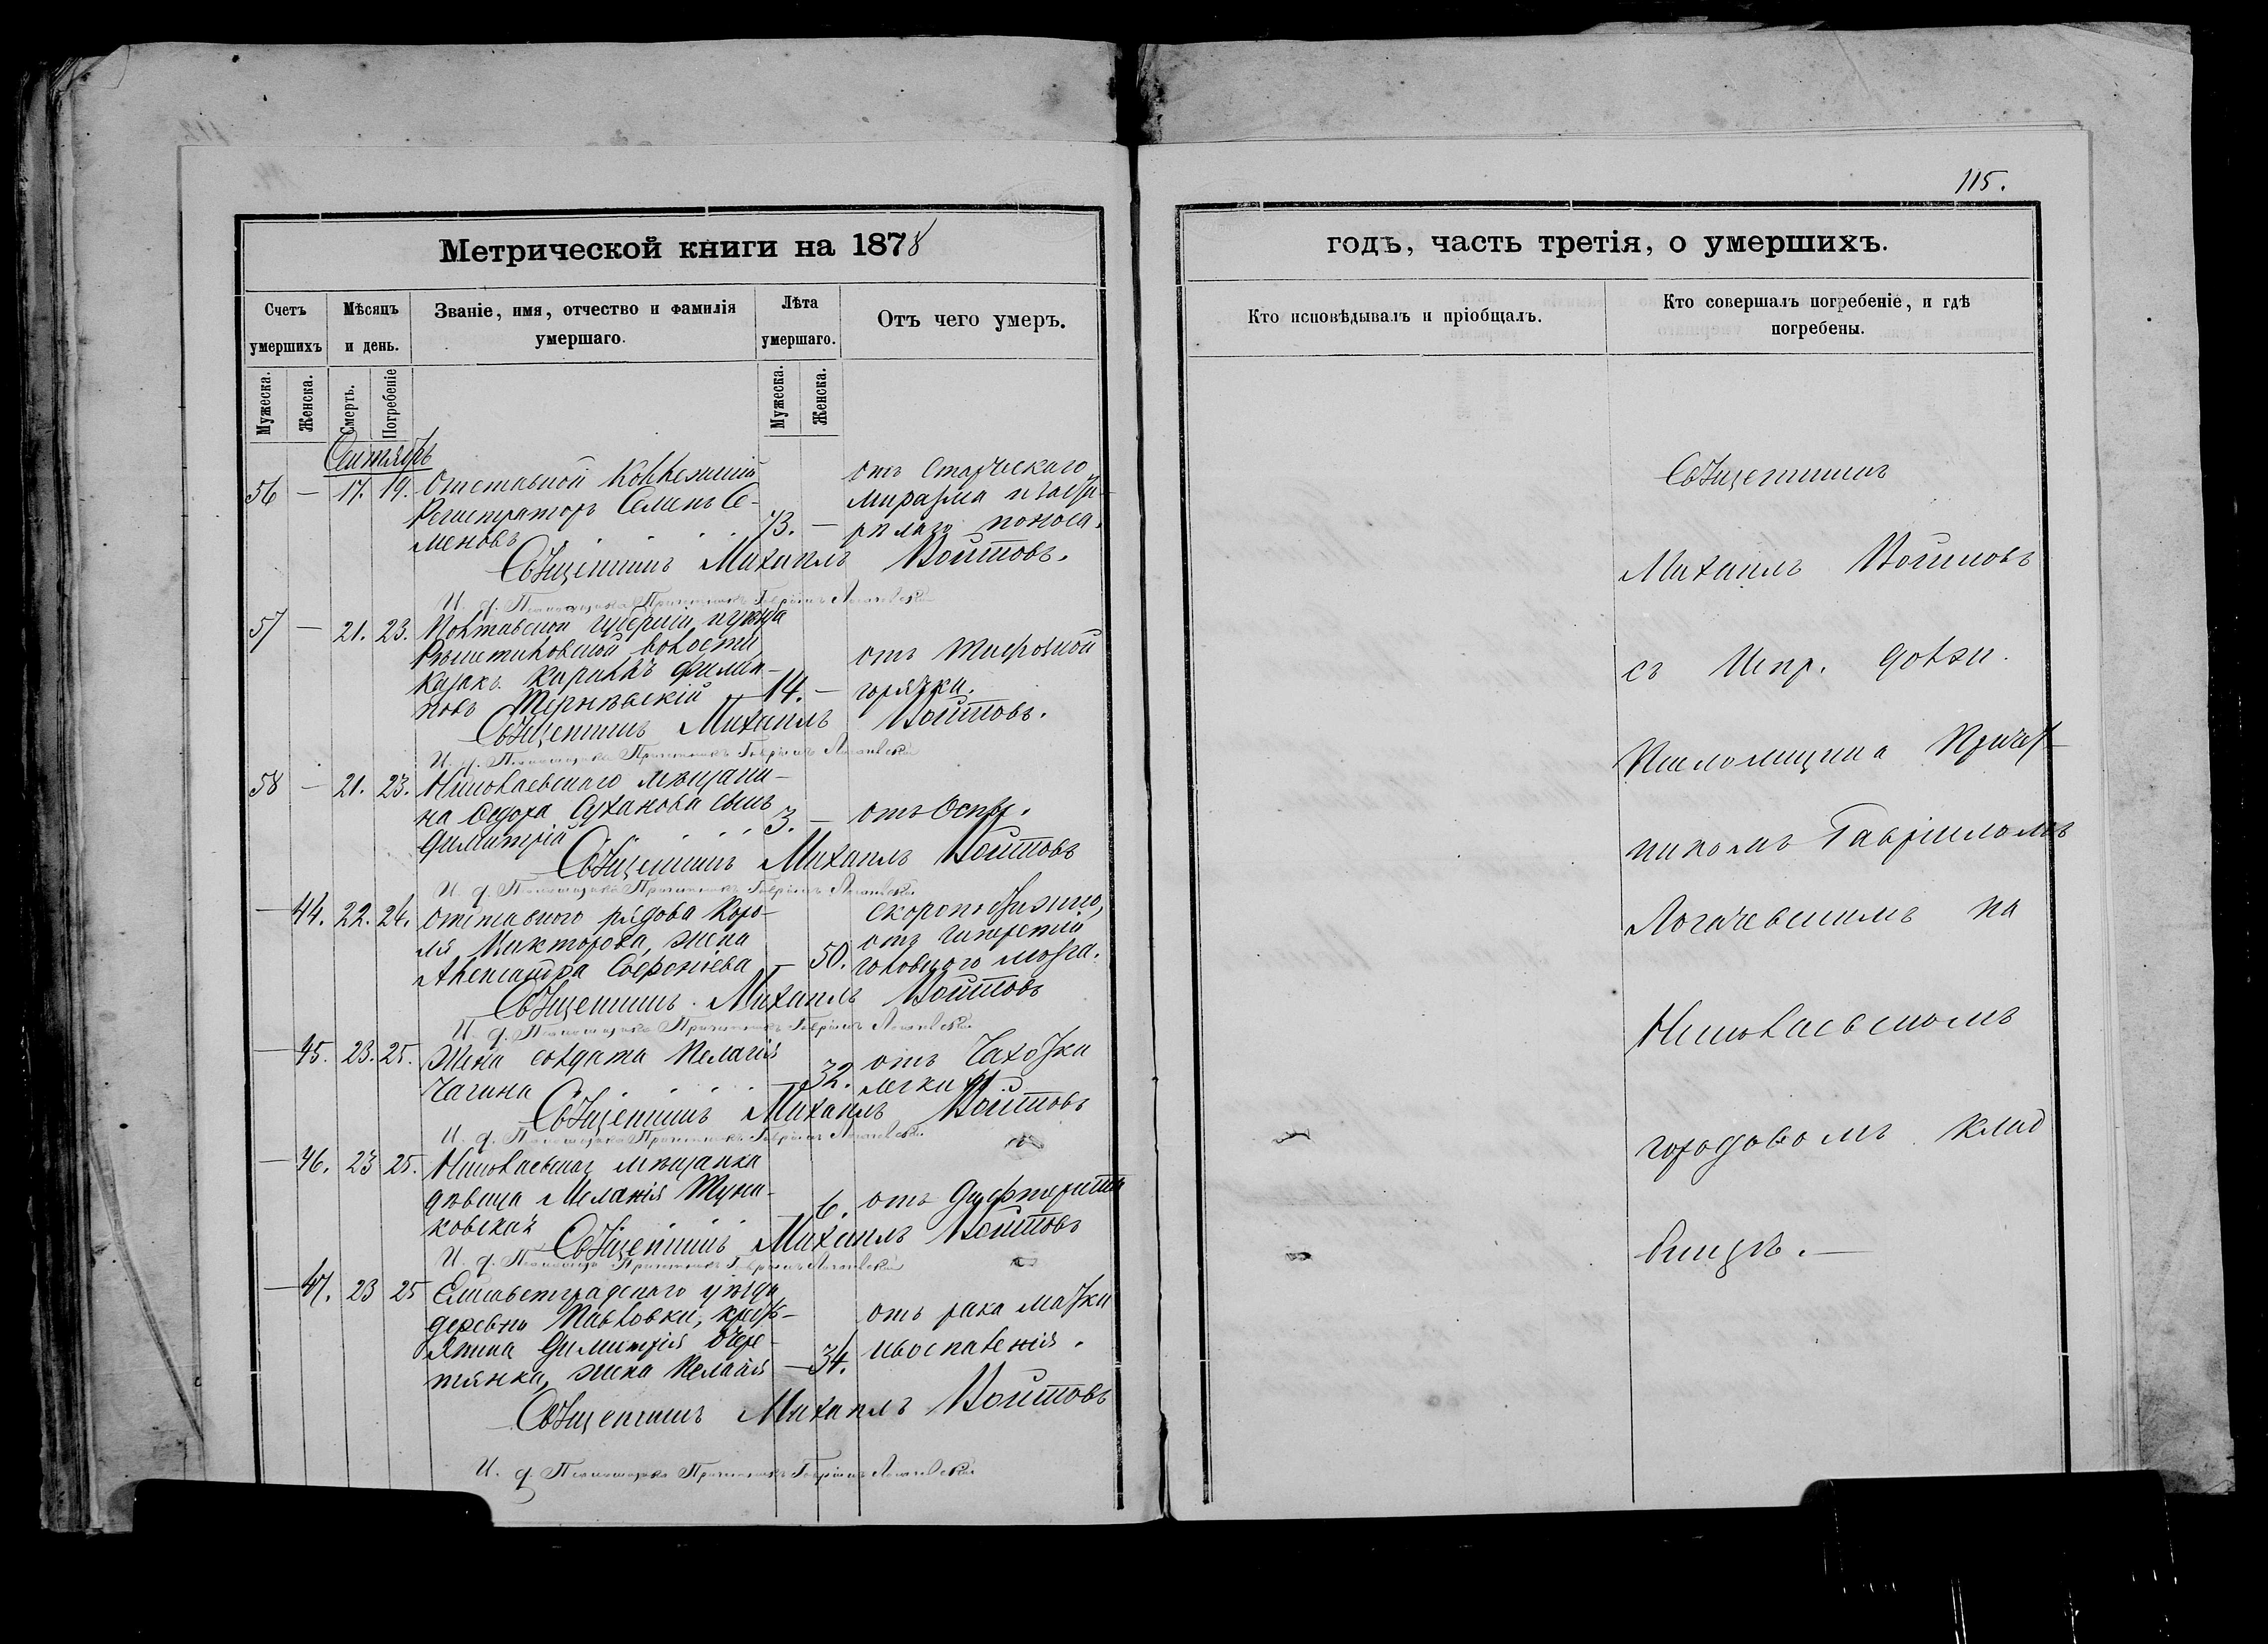 115.
Метрической книги на 1878
годъ, часть третія, о умершихъ.
Счетъ умершихъ
Мѣсяцъ и день.
Званіе, имя, отчество и фамилія умершаго.
Лѣта умершаго.
Отъ чего умеръ.
Кто исповѣдывалъ и пріобщалъ.
Кто совершалъ погребеніе, и гдѣ погребены.
Мужеска.
Женска.
Смерть.
Погребеніе
Мужеска.
Женска.
Сентябрь
56 — 17. 19. Отставной Коллежскій
Регистраторъ Семенъ Се-
меновъ 73. —
отъ Старческаго
маразма и
поноса.
Священникъ Михаилъ Войтовъ.
И. д. Псаломщика Причетникъ Гавріилъ Логачевскій
57 — 21. 23. Полтавской губерніи
волости
казакъ Кириллъ Филип-
повъ 14. —
отъ тифозной
горячки.
Священникъ Михаилъ Войтовъ.
И. д. Псаломщика Причетникъ Гавріилъ Логачевскій
58 — 21. 23. Николаевскаго мѣщани-
на Ѳедора Суханова сынъ
Димитрій 3. —
отъ Оспы.
Священникъ Михаилъ Войтовъ
И. д. Псаломщика Причетникъ Гавріилъ Логачевскій
— 44. 22. 24. Отставного рядова
Викторова, жена
Александра Софроніева — 50.
Скоропостижно,
отъ
головного мозга.
Священникъ Михаилъ Войтовъ
И. д. Псаломщика Причетникъ Гавріилъ Логачевскій
— 45. 23. 25. Жена солдата Пелагія
Чагина — 32.
отъ Чахотки
легких
Священникъ Михаилъ Войтовъ
И. д. Псаломщика Причетникъ Гавріилъ Логачевскій
— 46. 23 25. Николаевская мѣщанка
дѣвица Меланія
ковская 6.
отъ Дифтерита
Священникъ Михаилъ Войтовъ
И. д. Псаломщика Причетникъ Гавріилъ Логачевскій
— 47. 23 25 Елисаветградскаго уѣзда
деревни Павловки, крест-
янина Димитрія Очере-
тянка, жена Пелагія — 34.
отъ рака матки
и воспаленія.
Священникъ Михаилъ Войтовъ
И. д. Псаломщика Причетникъ Гавріилъ Логачевскій
Священникъ
Михаилъ Войтовъ
съ Испр. долж.
Псаломщика Причет-
никомъ Гавріиломъ
Логачевскимъ на
Николаевскомъ
городовомъ клад
бищѣ. —